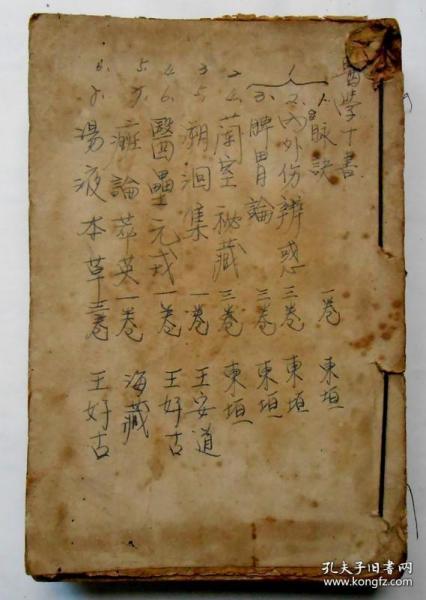 醫學十書
1. 脈訣 一卷 東垣
2. 內外伤辨惑 三卷 東垣
3. 脾胃論 三卷 東垣
2 4. 蘭室秘藏 三卷 東垣
3 5. 溯洄集 一卷 王安道
4. 6. 醫壘元戎 一卷 王好古
5. 7. 癍論萃英 一卷 海藏
6. 8. 湯液本草 三卷 王好古
孔夫子旧書网
www.kongfz.com